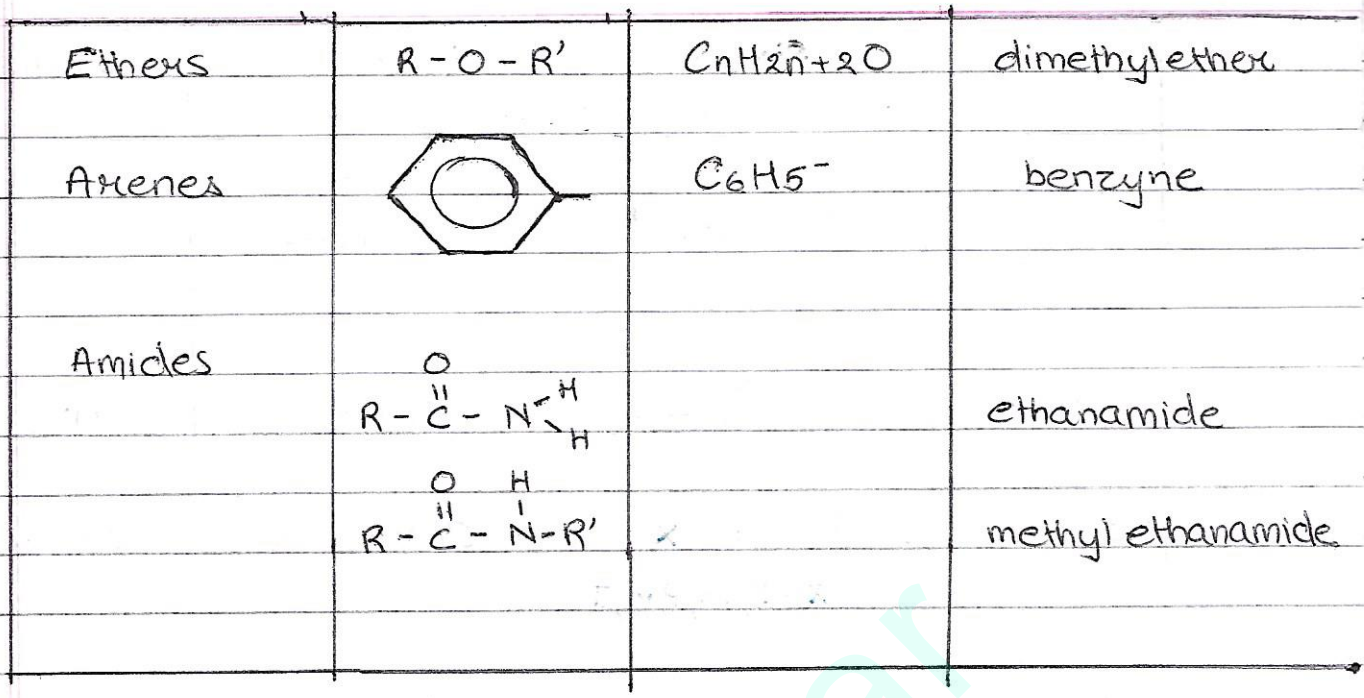 Ethers R - O - R' CnH2n+2O dimethylether
Arenes C6H5- benzyne
Amides
O
R - C - N H ethanamide
H
O H
R - C - N - R' methyl ethanamide
ar